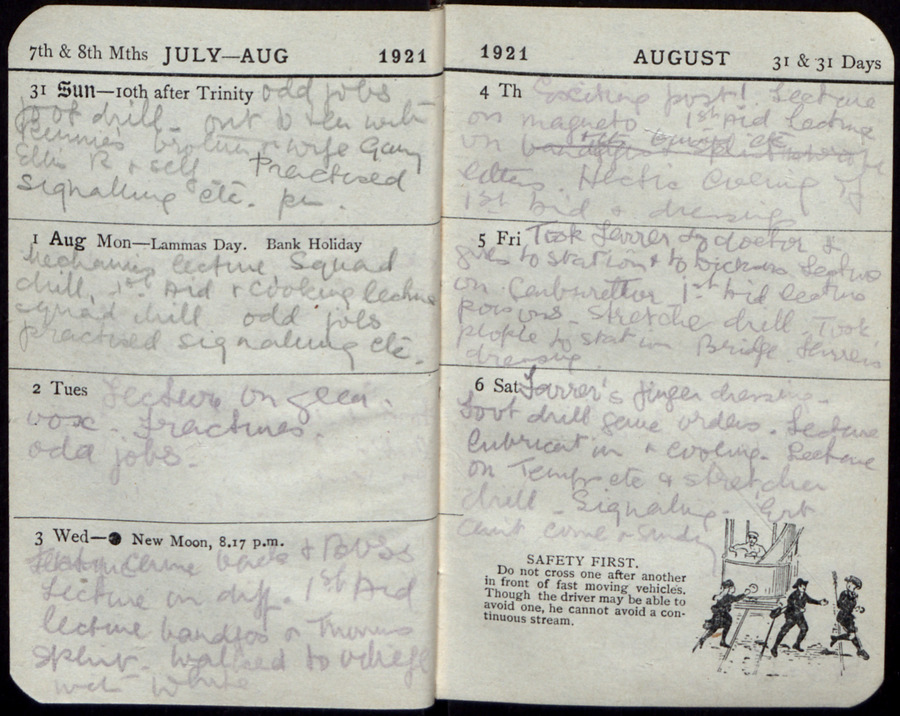 7th & 8th Mths JULY—AUG 1921
31 Sun—10th after Trinity odd jobs
foot drill. out to tea with
brother & wife
Ellis R & self Practised
signalling etc. pm.
1 Aug Mon—Lammas Day. Bank Holiday
Mechanism lecture Squad
drill, 1st Aid & Cooking lecture
squad drill odd jobs
practised signalling etc.
2 Tues Lecture on gear.
box. Fractures.
odd jobs.
3 Wed— New Moon, 8.17 p.m.
&
Lecture on diff. 1st Aid
lecture bandges & Thomas
Splint. Walked to
with White
1921 AUGUST 31 & 31 Days
4 Th Exciting post! Lecture
on magneto 1st Aid lecture
on
letters. Hectic evening of
1st Aid & dressings
5 Fri Took Farrer to doctor &
girls to station & to Lecture
on Carburettor 1st Aid lecture
poisons stretcher drill. Took
people to station Bridge. Farrer's
dressing
6 Sat Farrer's finger dressing.
Foot drill gave orders. Lecture
Lubrication & cooling. Lecture
on Temp etc & stretcher
drill. Signalling.
can't come Sunday
SAFETY FIRST.
Do not cross one after another
in front of fast moving vehicles.
Though the driver may be able to
avoid one, he cannot avoid a con-
tinuous stream.